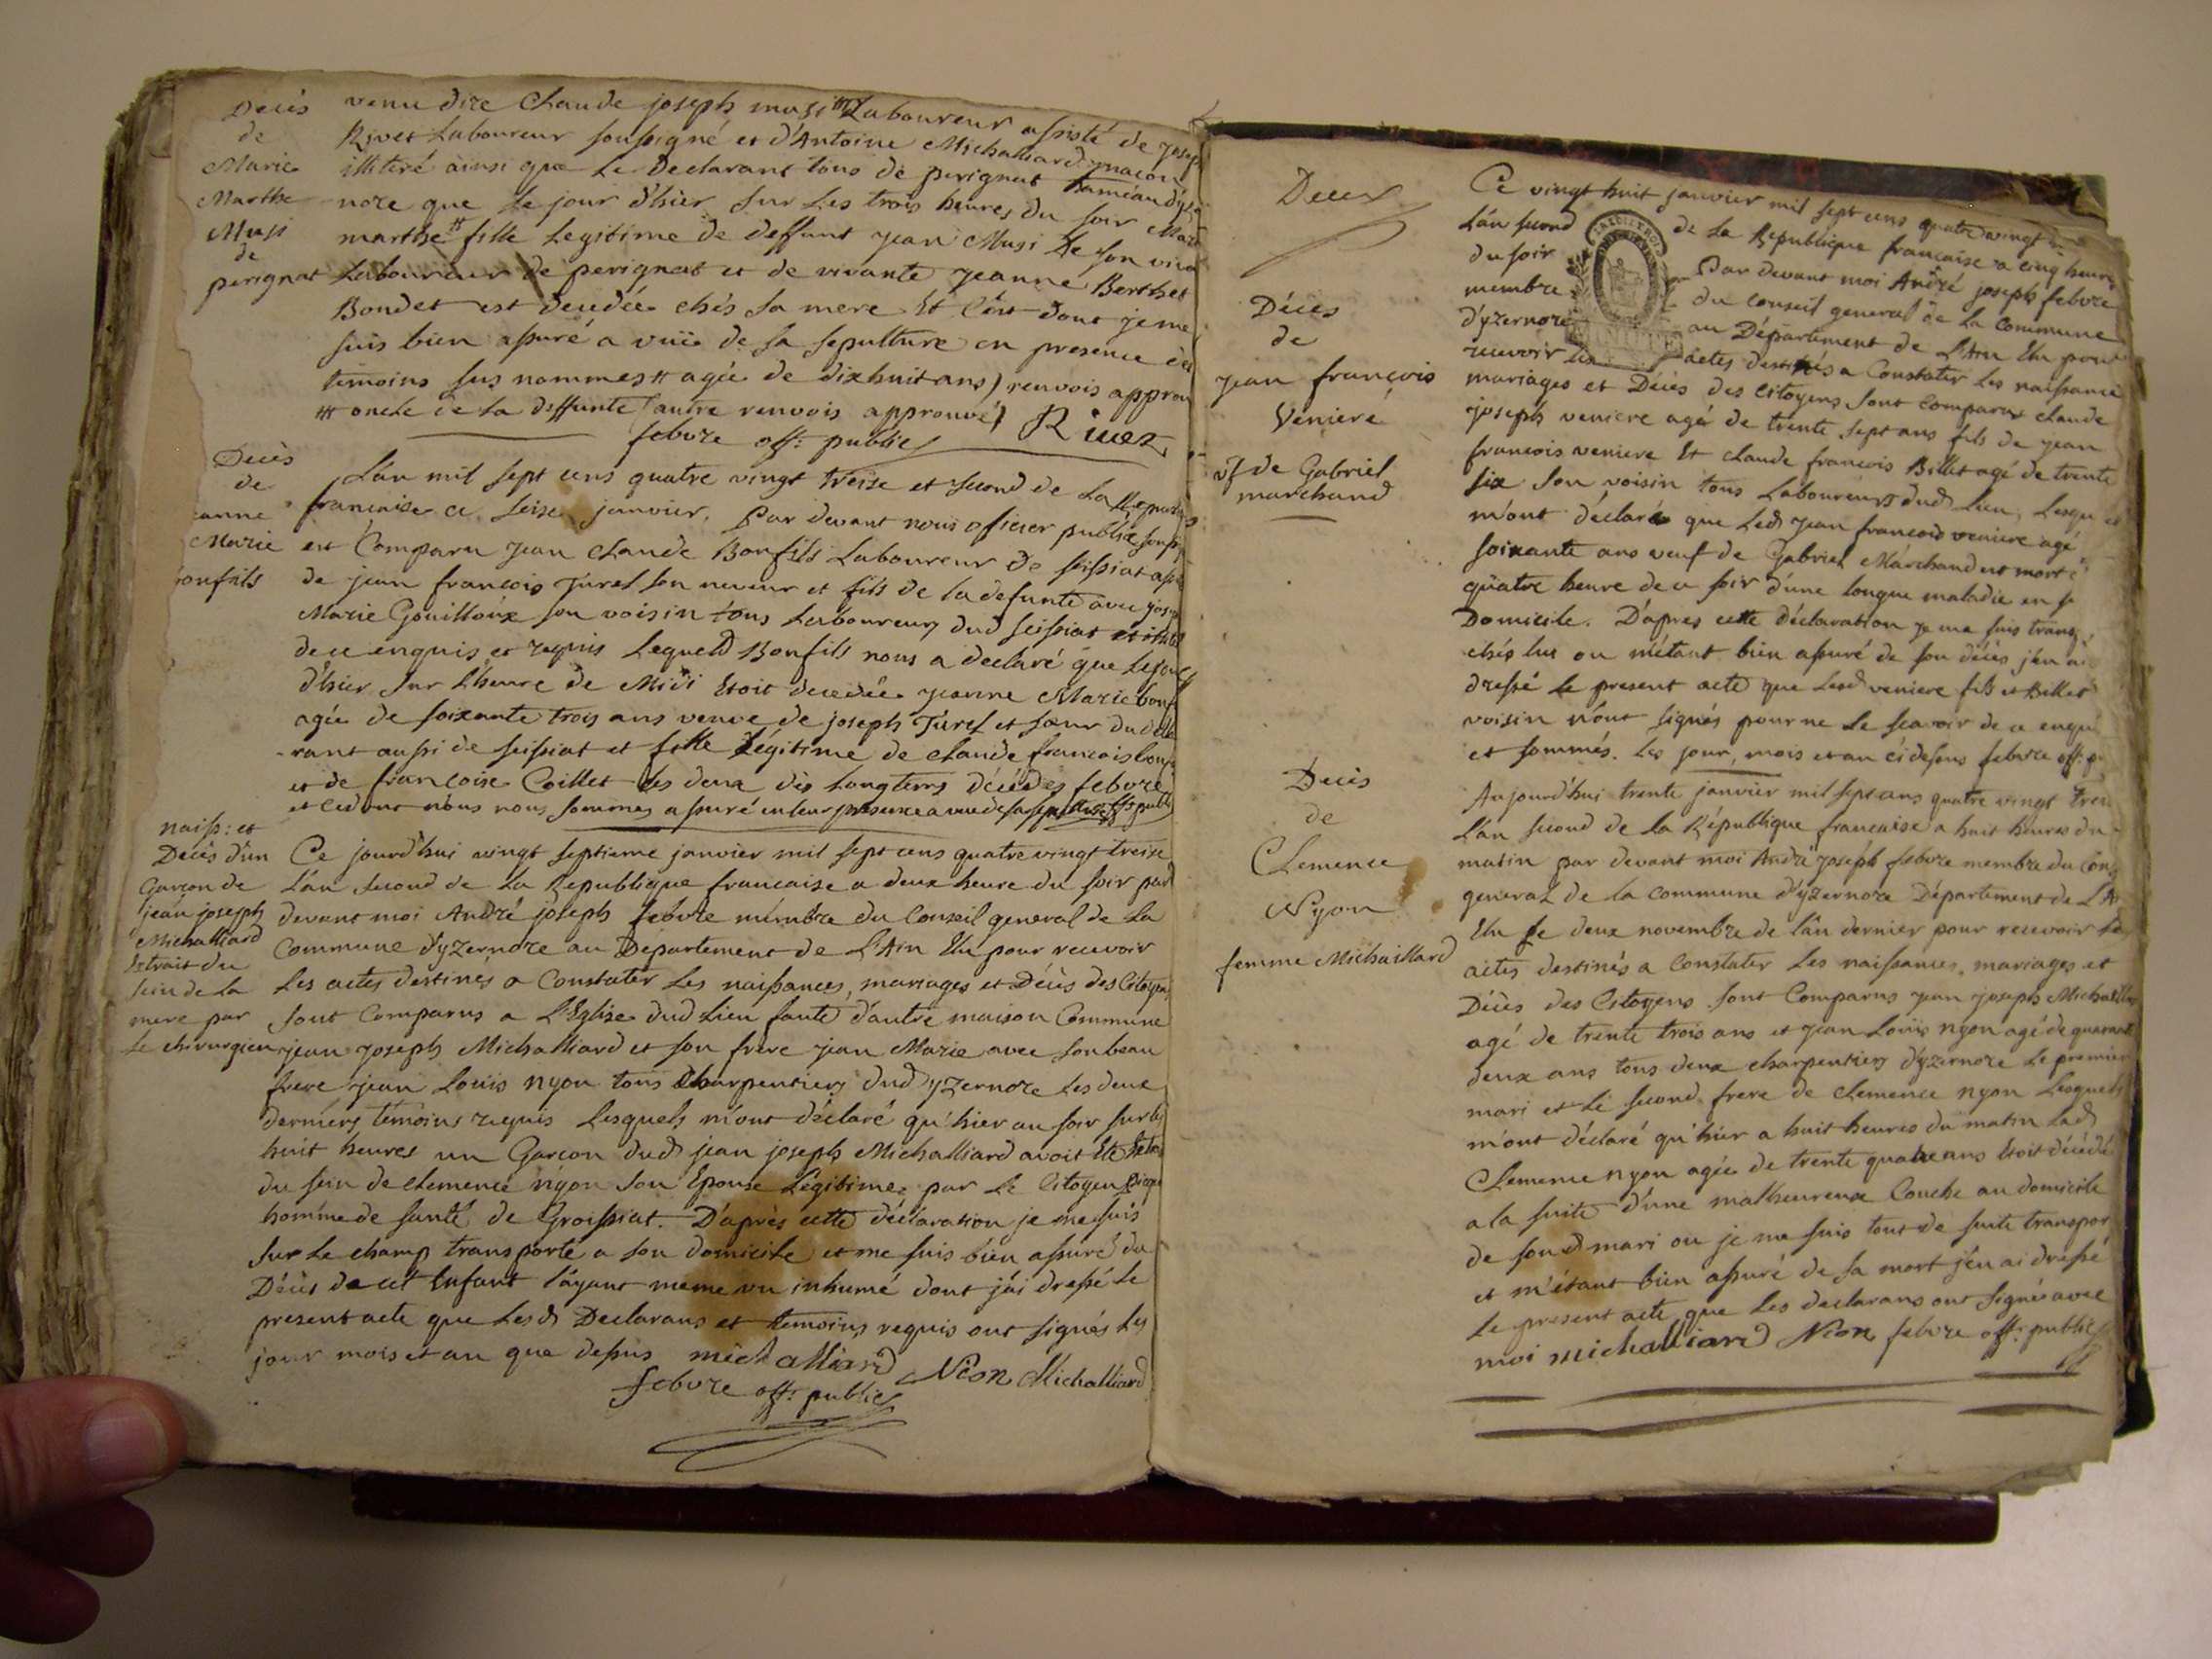 Decès
de
Marie
Marthe
Musi
de
perignat
venu dire Claude joseph musi Laboureur assisté de josep
Rivet Laboureur soussigné et d'Antoine Michalliard maçon
illiteré ainsi que Le Declarant tous de perignat hameau d'yz
nore que le jour d'hier sur Les trois heures du soir Mar
marthe fille Legitime de deffunt jean Musi de son viva
Laboureur de perignat et de vivante jeanne Berthet
Bondet est decedée chés sa mere Et C'est dont je me
suis bien assuré a vuë de sa sepulture en presence des
temoins sus nommes agée de dixhuit ans) renvois approu
oncle de la deffunte (autre renvois approuvé) Rivez
febvre off: public
Decès
de
eanne
Marie
onfils
L'an mil sept cens quatre vingt treise et second de La Republi
francaise ce seise janvier, Par devant nous oficier public soussi
est Comparu jean claude Bonfils Laboureur de seissiat assi
de jean francois Turel son neveur et fils de la defunte avec jose
Marie Gouilloux son voisin tous Laboureurs dud seissiat et
de ce enquis et requis Lequeld Bonfils nous a declaré que Le jour
d'hier sur L'heure de Midi Etoit decedée jeanne Marie bonf
agée de soixante trois ans veuve de joseph Turel et sœur du decla
rant aussi de seissiat et fille Légitime de claude francois bonf
et de francoise Coillet Les deux dès Longtems décédés febvre
et cedont nous nous sommes assuré en leur presence a vue de sa sepulture off publ
naiss: et
Decès d'un
Garçon de
jean joseph
Michalliard
Extrait du
sein de La
mere par
Le chirurgien
Ce jourd'hui vingt septieme janvier mil sept cens quatre vingt treise
L'an second de La Republique francaise a deux heure du soir par
devant moi André joseph febvre membre du Conseil general de La
Commune d'yzernore au Departement de L'Ain Elu pour recevoir
Les actes destinés a Constater Les naissances, mariages et Décès des Citoyens
sont Comparus a L'Eglise dud Lieu faute d'autre maison Commune
jean joseph Michalliard et son frère jean Marie avec son beau
frere jean Louis nyon tous Charpentiers dud yzernore Les deux
derniers temoins requis Lesquels m'ont déclaré qu'hier au soir sur les
huit heures un Garcon dud jean joseph Michalliard avoit Eté Extrai
du sein de clemence nyon son Epouse Légitime par Le Citoyen
homme de santé de Groissiat. D'après cette déclaration je me suis
sur Le champ transporte a son domicile et me suis bien assuré du
Décès de cet Enfant L'ayant meme vu inhumé dont j'ai dressé Le
present acte que Lesd Declarans et temoins requis ont signés Les
jour mois et an que dessus michalliard Nion Michalliard
febvre off: public
Deces
Ce vingt huit janvier mil sept cens quatre vingt
L'an second de La Republique francaise a cinq heures
du soir Par devant moi André joseph febvre
membre du Conseil general de La Commune
d'yzernore au Département de L'Ain Elu pour
recevoir Les actes destinés a Constater Les naissances
mariages et Décès des Citoyens sont Comparus claude
joseph veniere agé de trente sept ans fils de jean
francois veniere Et claude francois Billet agé de trente
six son voisin tous Laboureurs dud Lieu, Lesquels
m'ont déclaré que Led jean francois veniere agé
soixante ans veuf de Gabriel Marchand est mort
quatre heure de ce soir d'une longue maladie en s
Domicile. D'apres cette déclaration je me suis transp
chés lui ou m'étant bien assuré de son décès j'en ai
dressé le present acte que Lesd veniere fils et Billet
voisin n'ont signés pour ne le scavoir de ce enqui
et sommés. Les jour, mois et an ci dessus febvre off: p
Décès
de
jean françois
Veniere
vf de Gabriel
marchand
Decès
de
Clemence
Nyon
femme Michaillard
Aujourd'hui trente janvier mil sept cens quatre vingt trei
L'an second de la République francaise a huit heures du
matin par devant moi André joseph febvre membre du Cons
general de la commune d'yzernore Département de L'A
Elu Le deux novembre de l'an dernier pour recevoir Les
actes destinés a Constater Les naissances, mariages et
Décès des Citoyens sont Comparus jean joseph Michaillar
agé de trente trois ans et jean Louis nyon agé de quarante
deux ans tous deux charpentiers d'yzernore Le premier
mari et Le second frere de clemence nyon Lesquels
m'ont déclaré qu'hier a huit heures du matin Lad
Clemence nyon agée de trente quatre ans Etoit décédée
a la suite d'une malheureuse Couche au domicile
de sond mari ou je me suis tout de suite transpor
et m'étant bien assuré de sa mort j'en ai dressé
Le present acte que Les declarans ont signés avec
moi michalliard Nion febvre off: public